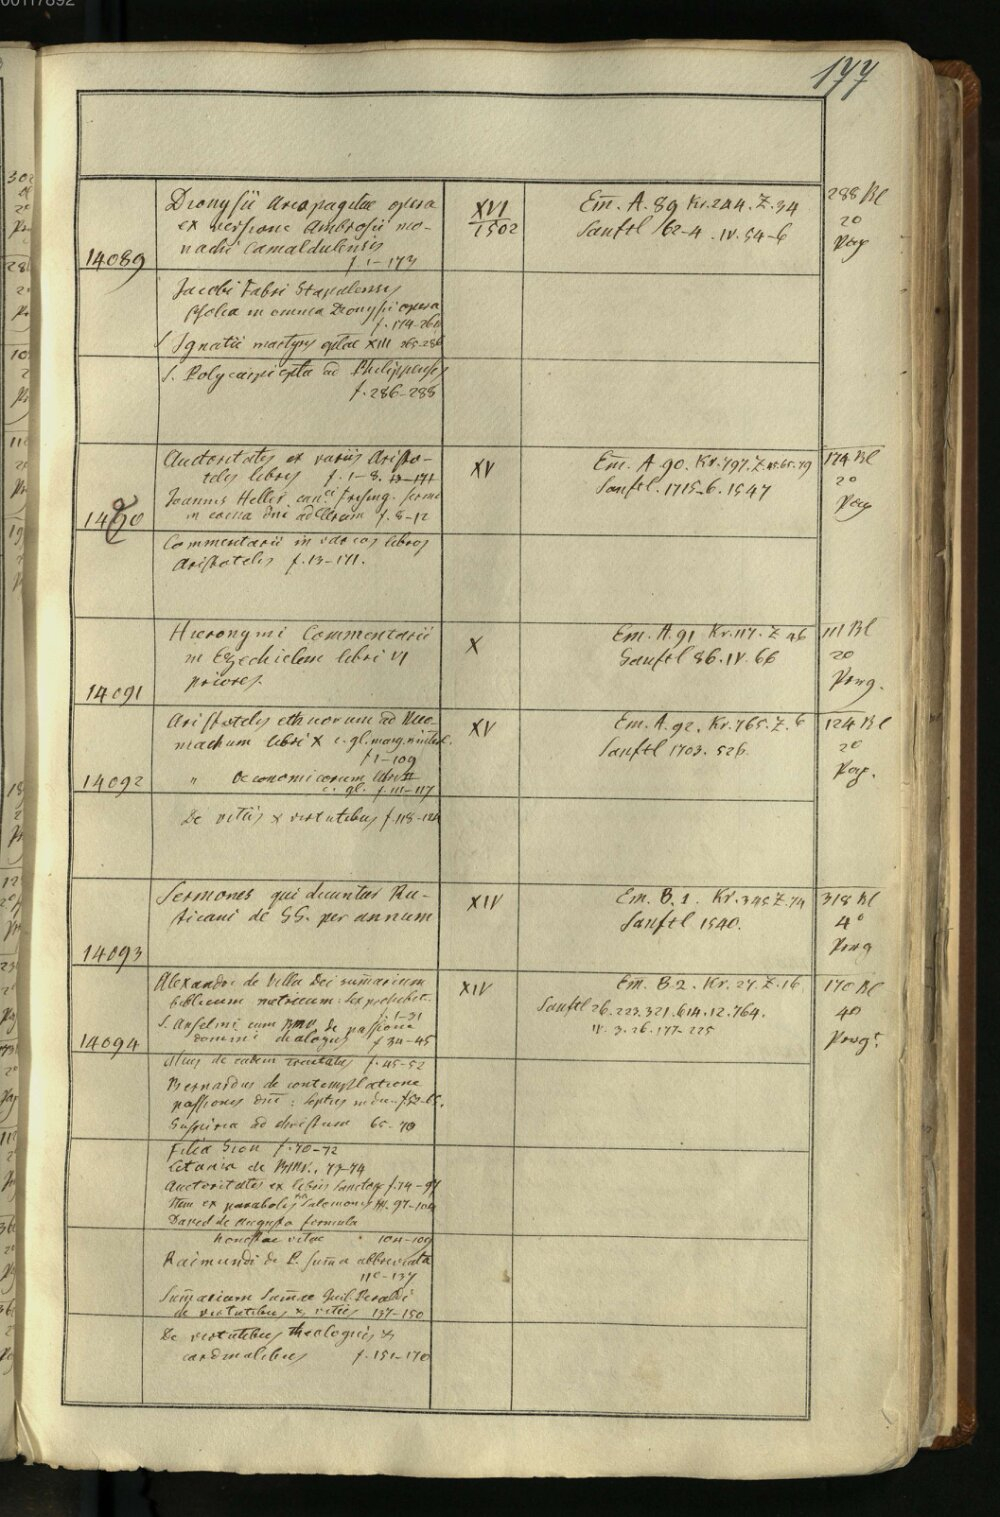 177
14089
Dionysii Areopagitae opera
ex versione Ambrosii mo-
nachi Camaldulensis
f. 1-173
XVI
1502
Em. A. 89 Kr. 244. Z. 34
Sanftl 162-4. IV. 54-6
288 Bl
2o
Pap
Jacobi Fabri Stapulensis
Scholia in omnia Dionysii opera
S. Ignatii martyris eptae XIII 265-286
S. Polycarpi epta ad Philippenses
f. 286-288
14090
Auctoritates ex variis Aristo-
telis libris f. 1-8. 13-171
Joannis Heller can. Frising. sermo
in coena dni ad clerum f. 8-12
Commentarii in varios libros
Aristotelis f. 13-171.
XV
Em. A 90. Kr. 797. Z.
Sanftl. 1715-6. 1547
174 Bl
2o
Pap
14091
Hieronymi Commentarii
in Ezechielem libri VI
priores.
X
Em. A. 91 Kr. 117. Z 46
Sanftl 86. IV. 66
111 Bl
2o
Perg.
14092
Aristotelis ethicorum ad Nico-
machum libri X c. gl. marg. et interl.
f 1-109
" Oeconomicorum libri II
c. gl. f. 111-117
De vitiis & virtutibus f. 118-124
XV
Em. A. 92. Kr. 765. Z. 6
Sanftl 1703. 526.
124 Bl
2o
Pap.
14093
Sermones qui dicuntur Ru-
sticani de SS. per annum
XIV
Em. B. 1. Kr. 345 Z. 74
Sanftl 1540.
318 Bl
4o
Perg
14094
Alexandri de Villa Dei summarium
biblicum metricum: Sex prohibet.
f. 1-31
S. Anselmi cum BMV. de passione
domini dialogus f 34-45
XIV
Em. B. 2. Kr. 27. Z. 16
Sanftl 26. 223. 321. 614. 12. 764.
IV. 3. 26. 177-225
170 Bl
4o
Perg.
Alius de eadem tractatus f. 45-52
Bernardus de contemplatione
passionis dni:
Suspiria ad Christum 65-70
Filia Sion f. 70-72
Litania de BMV. 73-74
Auctoritates ex libris sanctor f. 74-97
Item ex parabolis Salomonis 97-104
David de Augusta formula
honestae vitae 104-109
Raimundi de P. summa abbreviata
110-137
Summarium summae Guil. Peraldi
de virtutibus & vitiis 137-150
De virtutibus theologicis &
cardinalibus f. 151-170